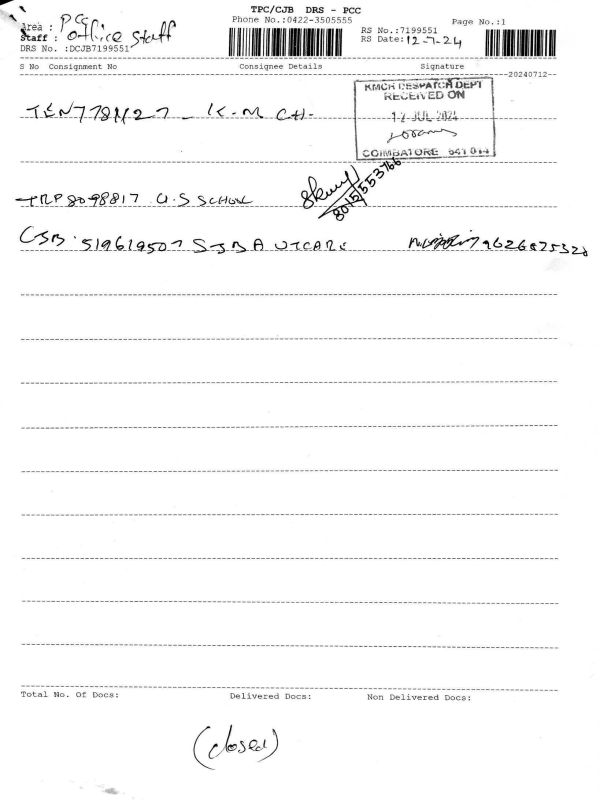 TPC/CJB DRS - PCC
Area : PCC Phone No.:0422-3505555 Page No.:1
Staff : Office Staff RS No.:7199551
DRS No. :DCJB7199551 RS Date: 12-7-24
S No Consignment No Consignee Details Signature
--20240712--
KMCH DESPATCH DEPT
RECEIVED ON
12 JUL 2024
COIMBATORE 641 014
TEN778127 - K.M CH-
TRP 8098817 U.S SCHOOL
8015553766
CJB. 519619507 9626875328
Total No. Of Docs: Delivered Docs: Non Delivered Docs:
(closed)